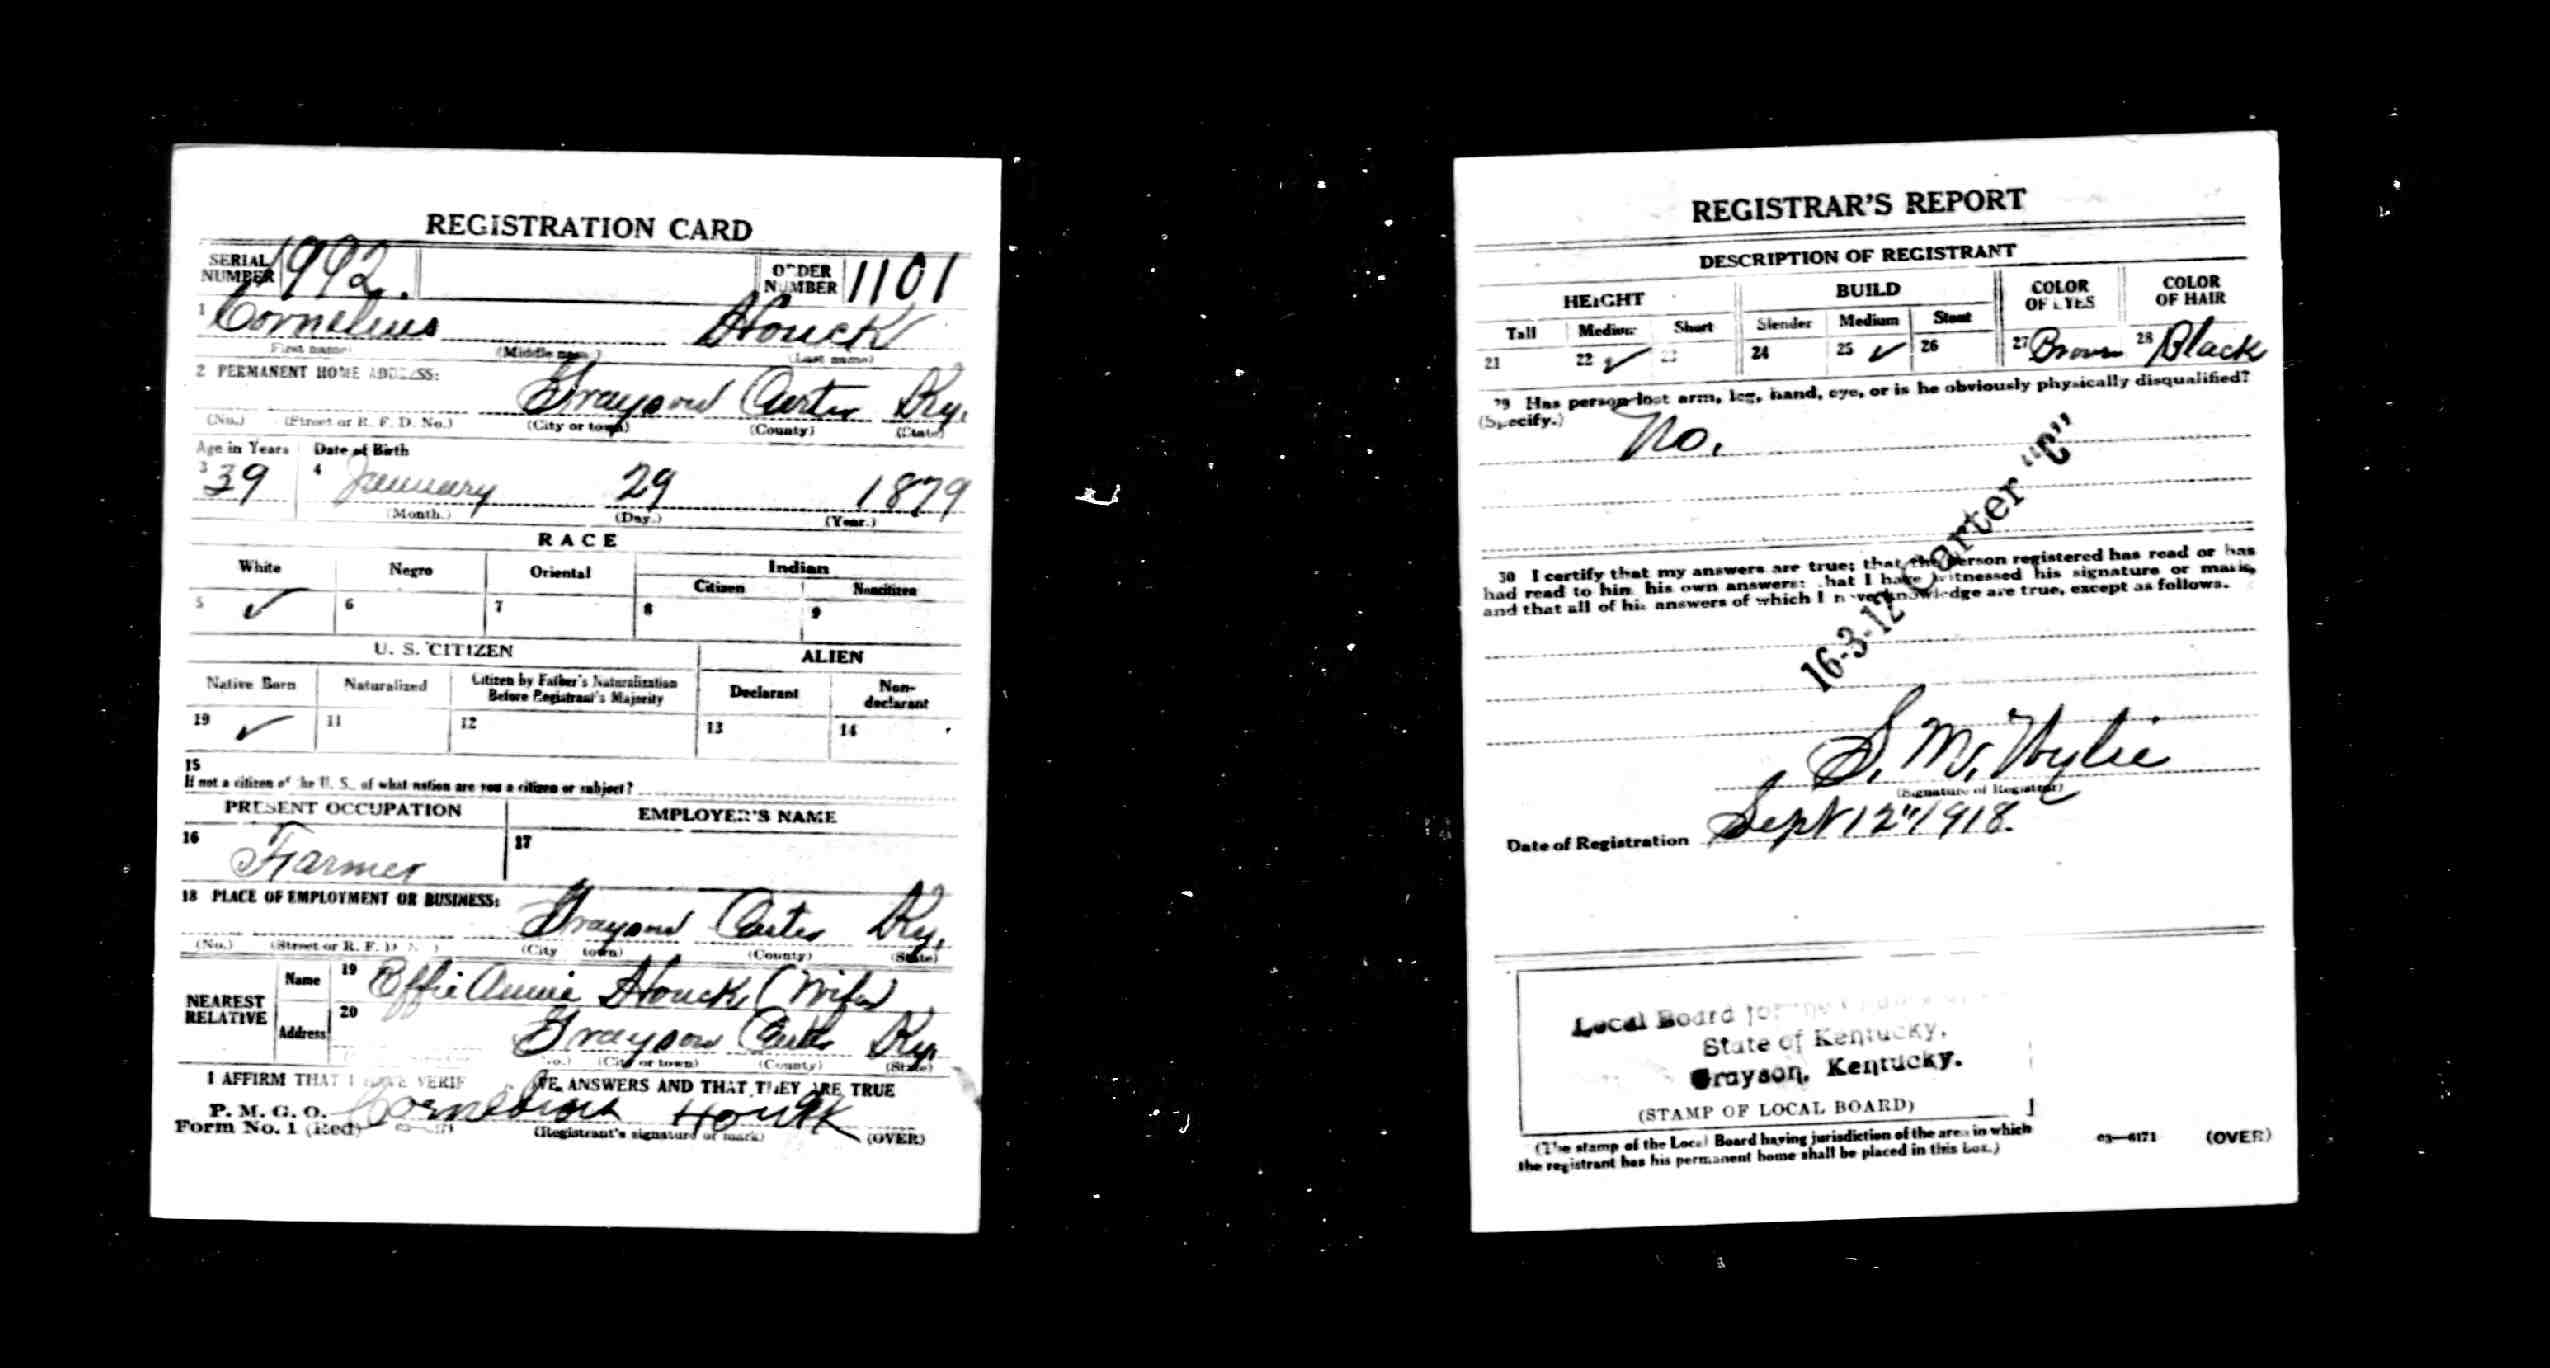 REGISTRATION CARD
SERIAL NUMBER 1992. ORDER NUMBER 1101
1 Cornelius Houck
(First name) (Middle name) (Last name)
2 PERMANENT HOME ADDRESS:
Grayson Carter Ky.
(No.) (Street or R. F. D. No.) (City or town) (County) (State)
Age in Years Date of Birth
3 39 4 January 29 1879
(Month.) (Day.) (Year.)
RACE
White Negro Oriental Indian
Citizen Noncitizen
5 ✓ 6 7 8 9
U. S. CITIZEN ALIEN
Native Born Naturalized Citizen by Father's Naturalization Before Registrant's Majority Declarant Non-declarant
10 ✓ 11 12 13 14
15
If not a citizen of the U. S., of what nation are you a citizen or subject?
PRESENT OCCUPATION EMPLOYER'S NAME
16 Farmer 17
18 PLACE OF EMPLOYMENT OR BUSINESS:
Grayson Carter Ky.
(No.) (Street or R. F. D. No.) (City or town) (County) (State)
NEAREST RELATIVE Name 19 Effie Annie Houck (Wife)
Address 20 Grayson Carter Ky.
(City or town) (County) (State)
I AFFIRM THAT I HAVE VERIFIED ABOVE ANSWERS AND THAT THEY ARE TRUE
P. M. G. O.
Form No. 1 (Red) 03-6171 Cornelious Houck
(Registrant's signature or mark) (OVER)
REGISTRAR'S REPORT
DESCRIPTION OF REGISTRANT
HEIGHT BUILD COLOR OF EYES COLOR OF HAIR
Tall Medium Short Slender Medium Stout
21 22 ✓ 23 24 25 ✓ 26 27 Brown 28 Black
29 Has person lost arm, leg, hand, eye, or is he obviously physically disqualified?
(Specify.) No.
16-3-12 Carter "C"
30 I certify that my answers are true; that the person registered has read or has
had read to him his own answers; that I have witnessed his signature or mark,
and that all of his answers of which I have knowledge are true, except as follows.
S. M. Wylie
(Signature of Registrar)
Date of Registration Sept 12" 1918.
Local Board for the
State of Kentucky,
Grayson, Kentucky.
(STAMP OF LOCAL BOARD)
(The stamp of the Local Board having jurisdiction of the area in which
the registrant has his permanent home shall be placed in this box.)
03—6171 (OVER)